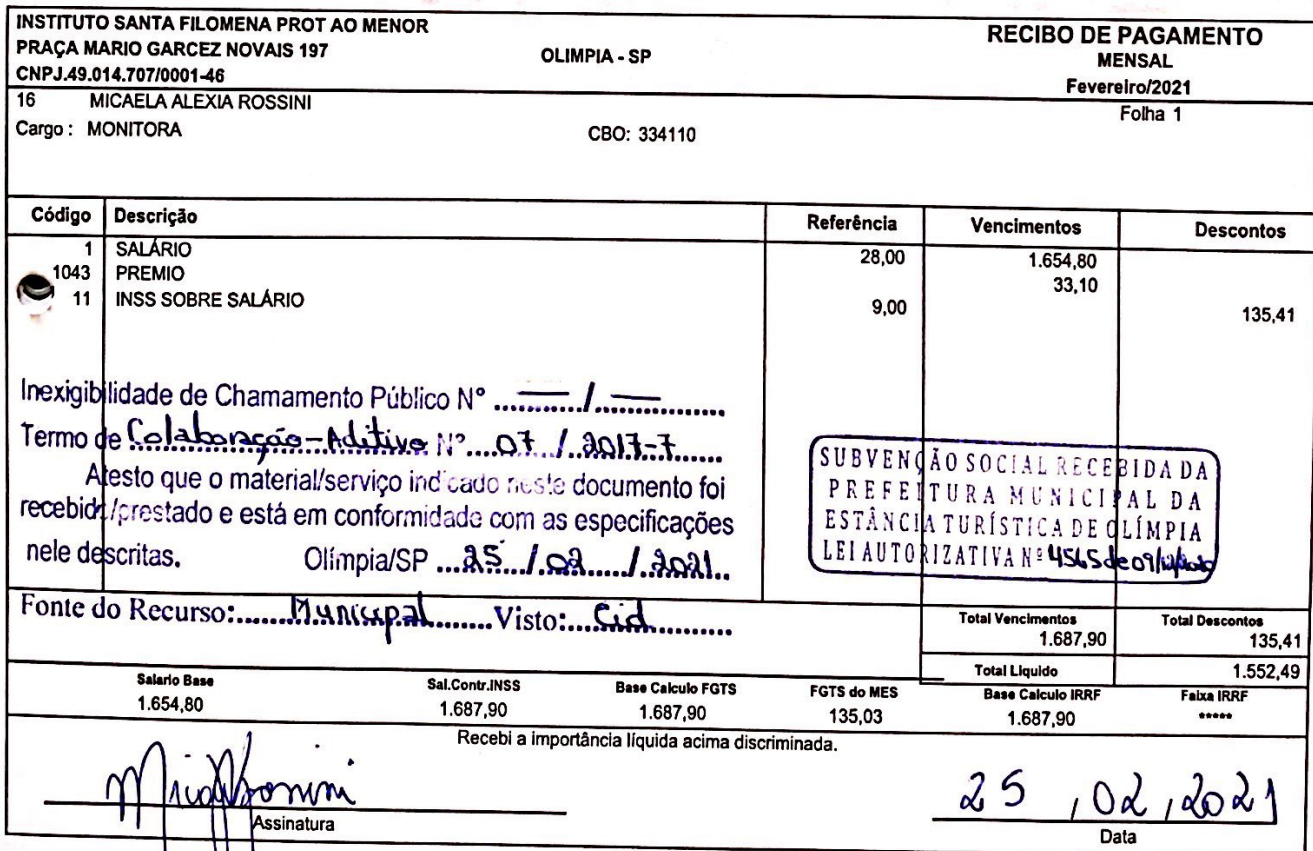 INSTITUTO SANTA FILOMENA PROT AO MENOR
PRAÇA MARIO GARCEZ NOVAIS 197
CNPJ.49.014.707/0001-46
OLIMPIA - SP
RECIBO DE PAGAMENTO
MENSAL
Fevereiro/2021
16 MICAELA ALEXIA ROSSINI
Folha 1
Cargo : MONITORA CBO: 334110
Código Descrição Referência Vencimentos Descontos
1 SALÁRIO 28,00 1.654,80
1043 PREMIO 33,10
11 INSS SOBRE SALÁRIO 9,00 135,41
Inexigibilidade de Chamamento Público Nº ..... — / — .....
Termo de Colaboração-Aditivo Nº 07 / 2017-7
Atesto que o material/serviço indicado neste documento foi
recebido/prestado e está em conformidade com as especificações
nele descritas. Olímpia/SP 25 / 02 / 2021
SUBVENÇÃO SOCIAL RECEBIDA DA
PREFEITURA MUNICIPAL DA
ESTÂNCIA TURÍSTICA DE OLÍMPIA
LEI AUTORIZATIVA Nº 4565 de 09/12/2020
Fonte do Recurso: Municipal Visto: Cid
Total Vencimentos Total Descontos
1.687,90 135,41
Total Liquido 1.552,49
Salario Base Sal.Contr.INSS Base Calculo FGTS FGTS do MES Base Calculo IRRF Faixa IRRF
1.654,80 1.687,90 1.687,90 135,03 1.687,90 *****
Recebi a importância líquida acima discriminada.
25 , 02 , 2021
Assinatura Data